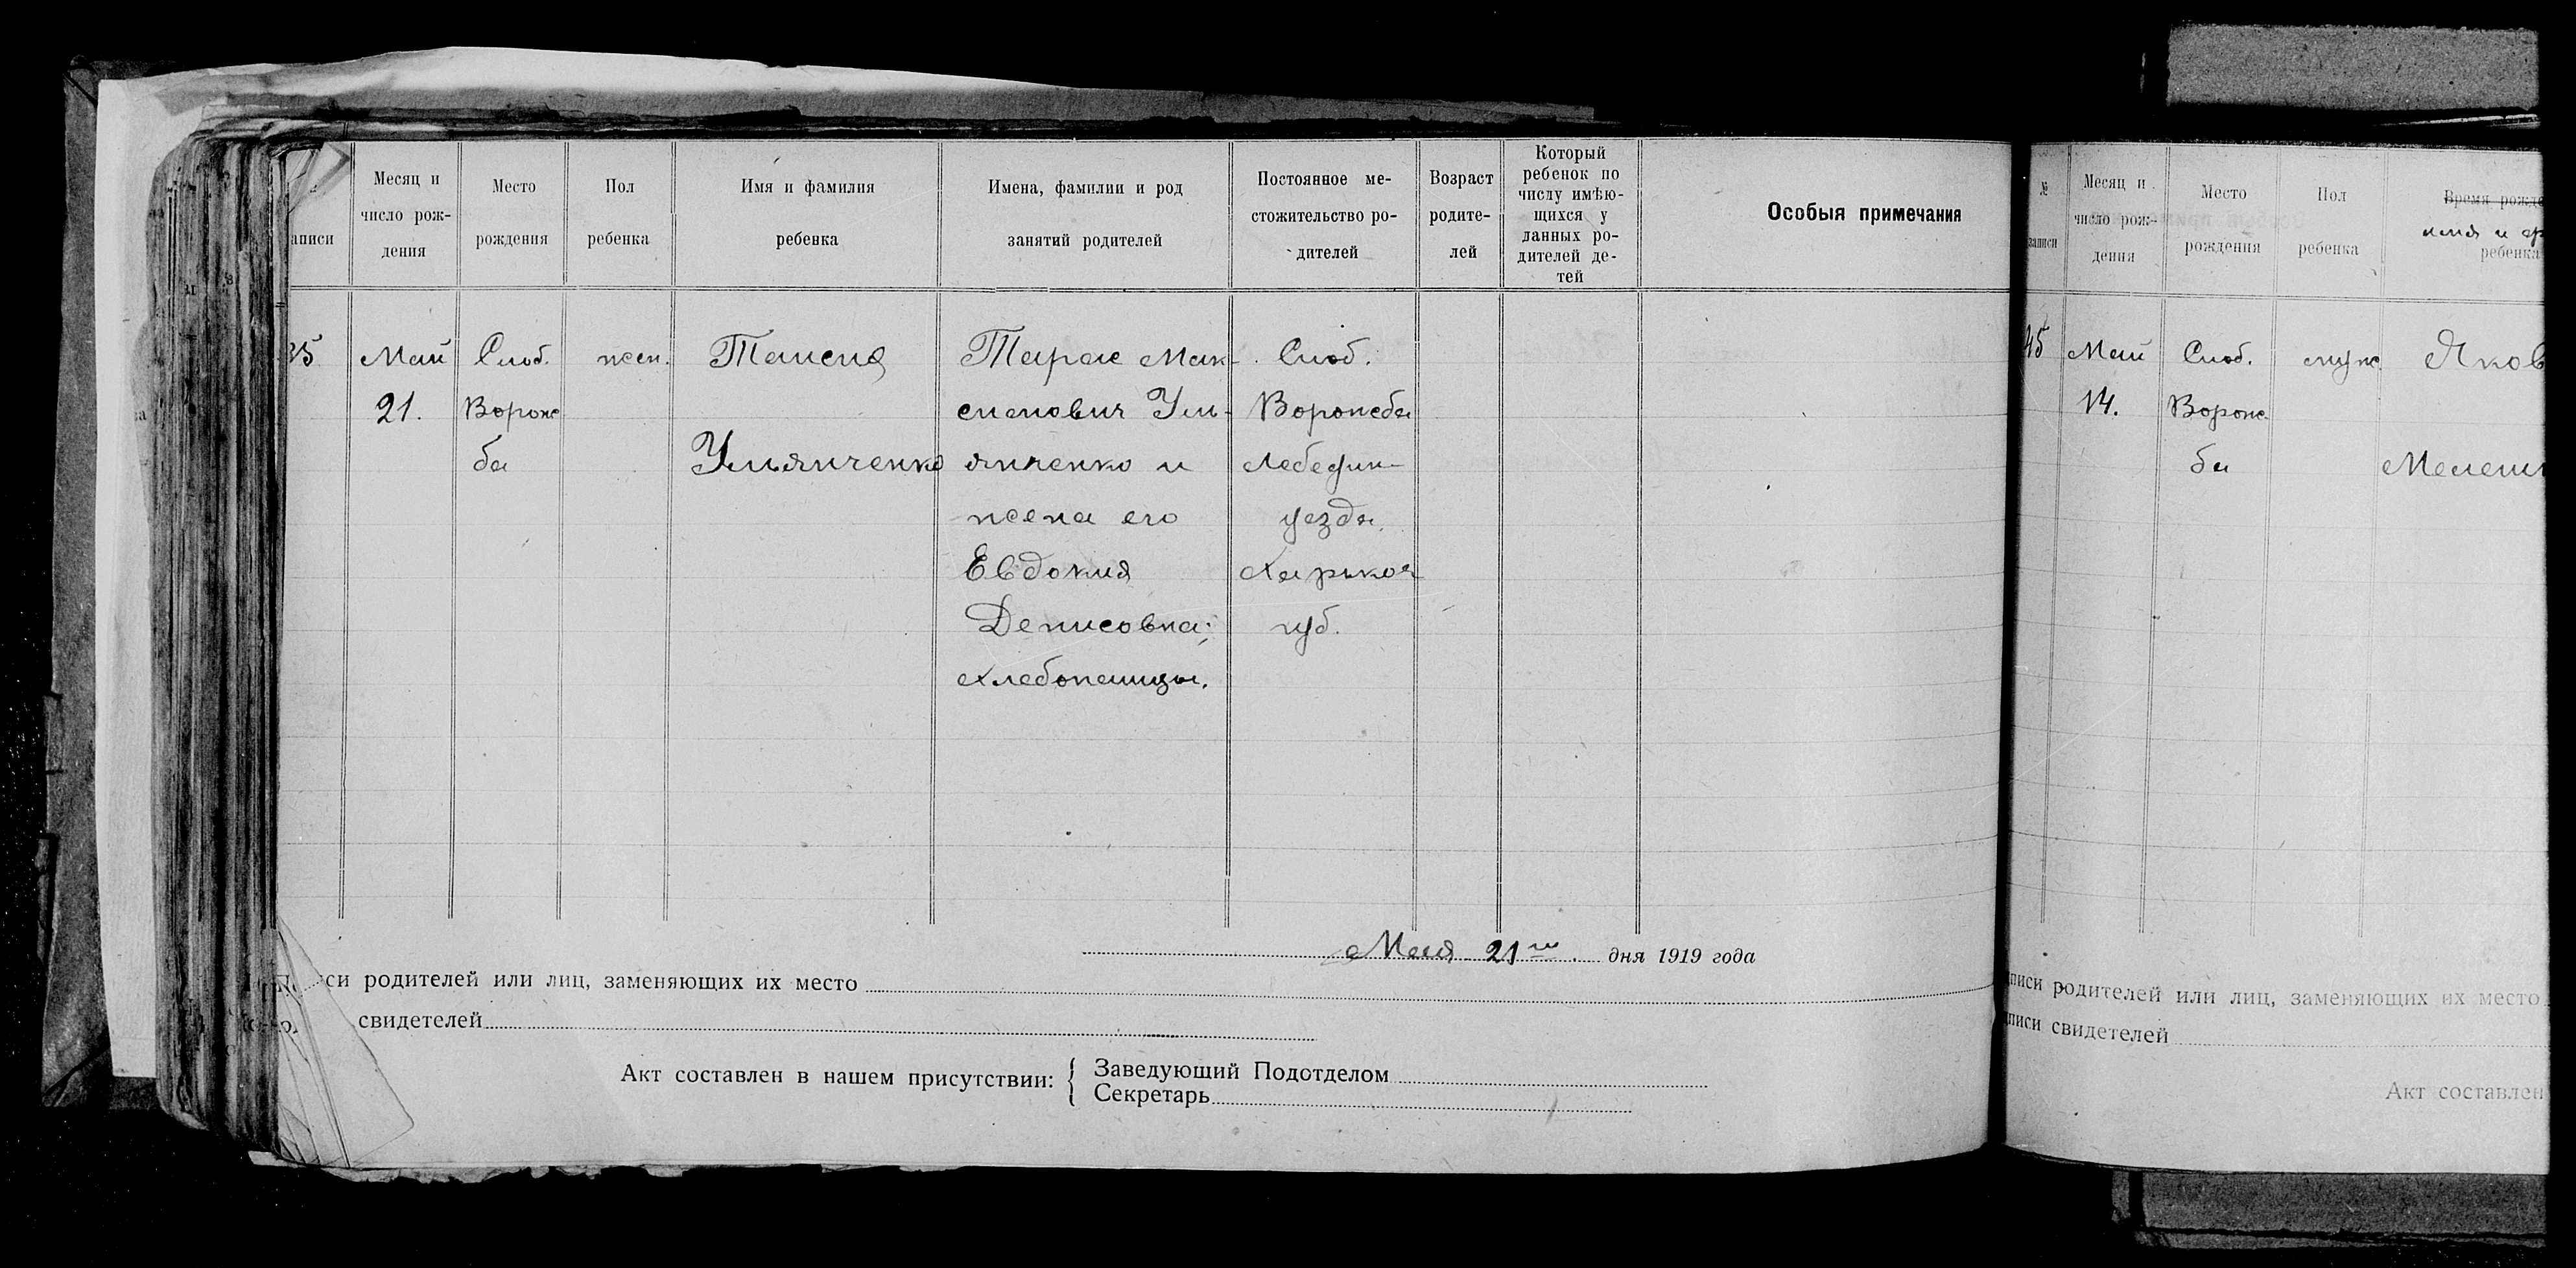 аписи
Месяц и
число рож-
дения
Место
рождения
Пол
ребенка
Имя и фамилия
ребенка
Имена, фамилии и род
занятий родителей
Постоянное ме-
стожительство ро-
дителей
Возраст
родите-
лей
Который
ребенок по
числу имѣю-
щихся у
данных ро-
дителей де-
тей
Особыя примечания
35
Май
21.
Слоб.
Ворож
ба
жен.
Таисия
Ульянченко
Тарас Мак-
симович Уль-
янченко и
жена его
Евдокия
Денисовна;
хлебопашцы.
Слоб.
Ворожба
Лебедин-
уезда.
Харьков
губ.
Мая 21го дня 1919 года
си родителей или лиц, заменяющих их место
свидетелей
Акт составлен в нашем присутствии:
Заведующий Подотделом
Секретарь
№
записи
Месяц и
число рож-
дения
Место
рождения
Пол
ребенка
Время рожде
имя и ф
ребенка
45
Май
14.
Слоб.
Ворож
ба
муж.
Яков
писи родителей или лиц, заменяющих их место
писи свидетелей
Акт составлен